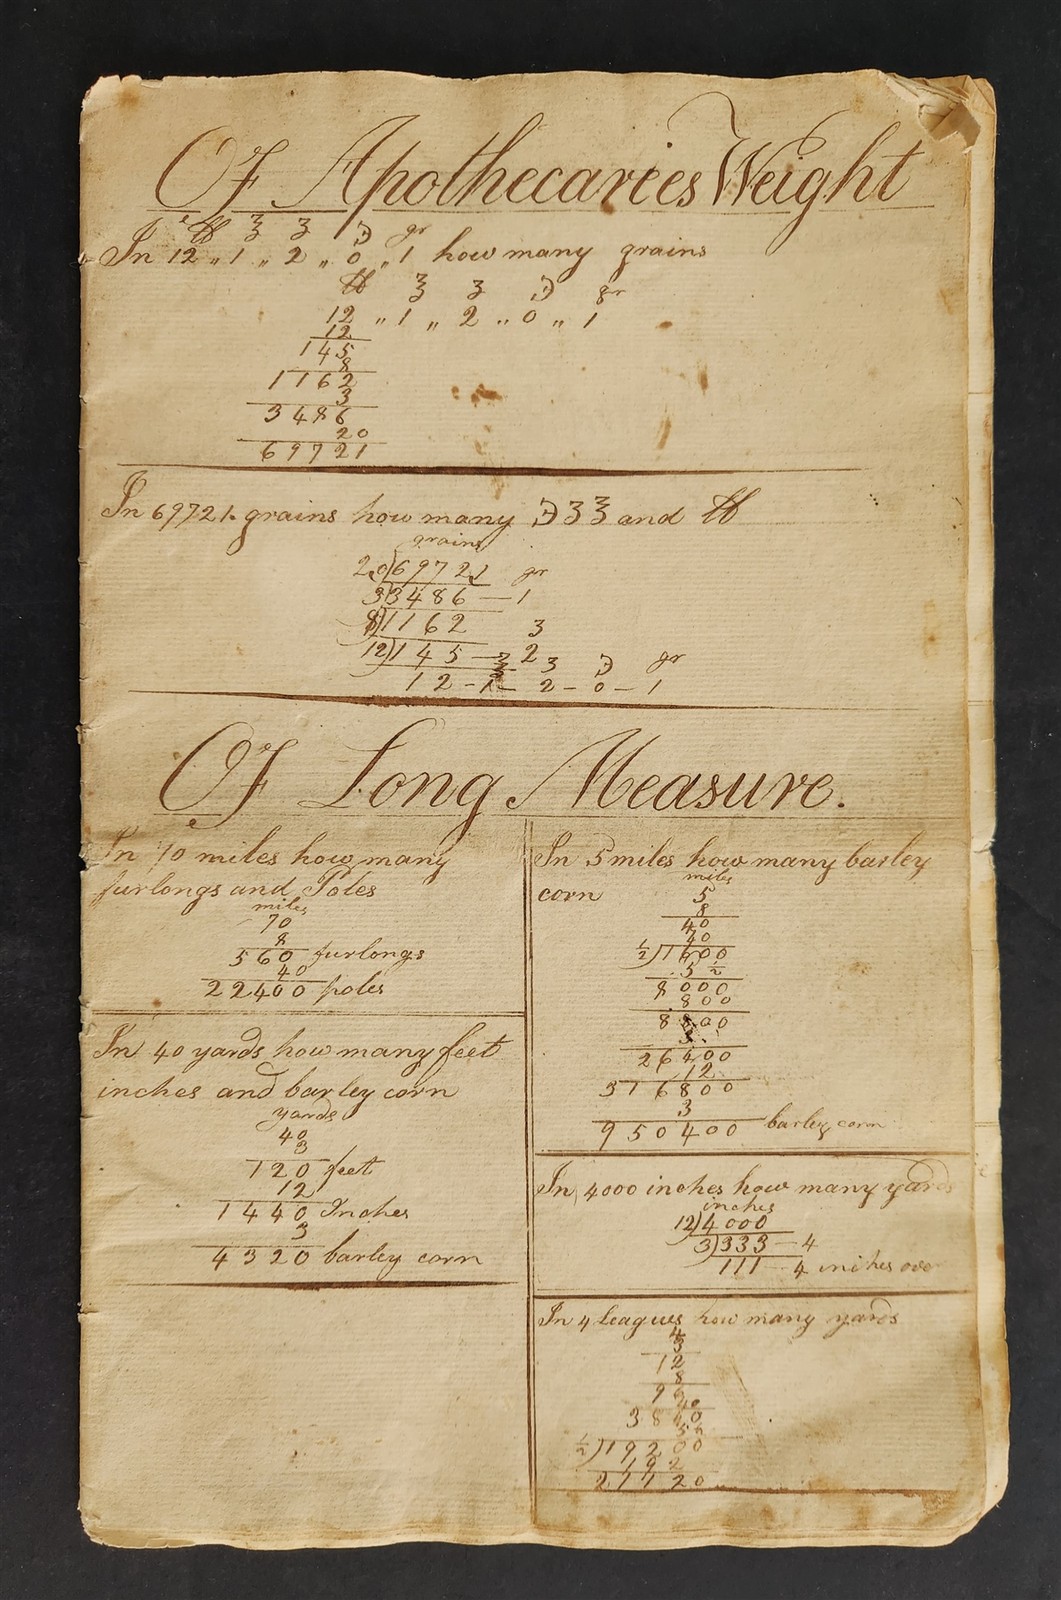 Of Apothecaries Weight
℔ ℥ ʒ ℈ gr
In 12 „ 1 „ 2 „ 0 „ 1 how many grains
℔ ℥ ʒ ℈ gr
12 „ 1 „ 2 „ 0 „ 1
12
145
8
1162
3
3486
20
69721
In 69721 grains how many ℈ ʒ ℥ and ℔
grains
20)69721 gr
3)3486 — 1
8)1162 ʒ
12)145 — 2
℥ ʒ ℈ gr
12 - 1 - 2 - 0 - 1
Of Long Measure.
In 70 miles how many
furlongs and Poles
miles
70
8
560 furlongs
40
22400 poles
In 40 yards how many feet
inches and barley corn
yards
40
3
120 feet
12
1440 Inches
3
4320 barley corn
In 5 miles how many barley
corn
miles
5
8
40
40
½)1600
5 ½
8000
800
8800
3
26400
12
316800
3
950400 barley corn
In 4000 inches how many yards
inches
12)4000
3)333 — 4
111 — 4 inches over
In 4 leagues how many yards
4
3
12
8
96
40
3840
5½
½)19200
192
21120